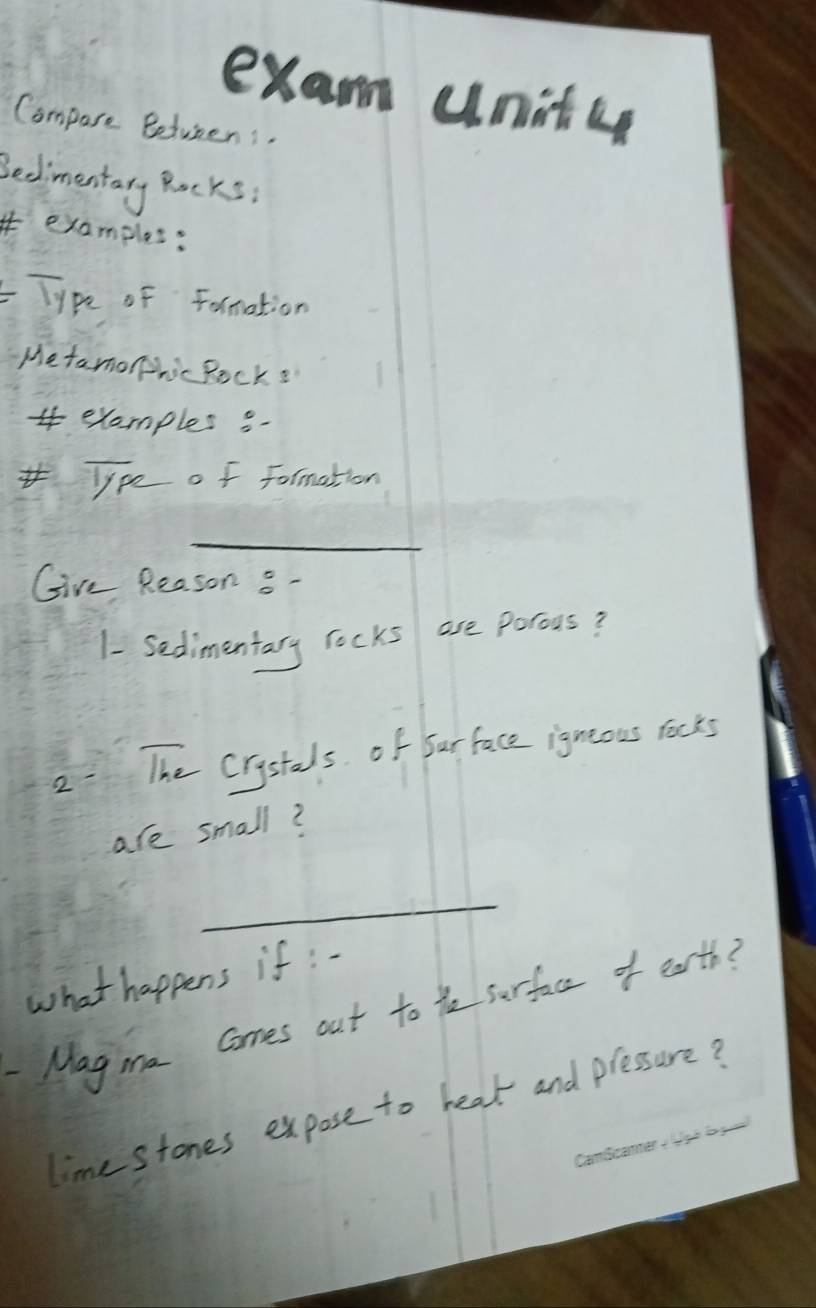 exam unit 4
Compare Between :-
Sedimentary Rocks :
# examples :
- Type of Formation
Metamorphic Rocks :
# examples :-
# Type of Formation
Give Reason :-
1- Sedimentary rocks are Porous ?
2- The crystals of surface igneous rocks
are small ?
what happens if :-
- Magma comes out to the surface of earth ?
limestones expose to heat and pressure ?
CamScanner الممسوحة ضوئيا بـ